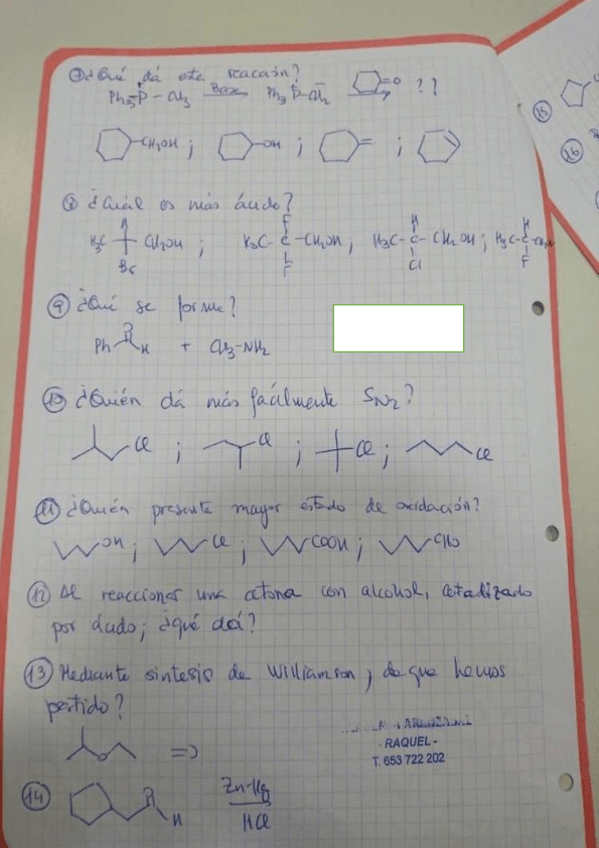 ⑦ ¿Qué dá esta reacción?
Ph₃P⁺-CH₃ Base Ph₃P⁺-CH₂⁻ O ??
CH₂OH ; OH ; ;
⑧ ¿Cuál es más ácido?
H₃C CH₂OH ; H₃C-C-CH₂OH ; H₃C-C-CH₂OH ; H₃C-C
Br F F H Cl H F
⑨ ¿Qué se forma?
Ph H + CH₃-NH₂
⑩ ¿Quién dá más fácilmente SN2?
Cl ; Cl ; Cl ; Cl
⑪ ¿Quién presenta mayor estado de oxidación?
OH ; Cl ; COOH ; CHO
⑫ Al reaccionar una cetona con alcohol, catalizado
por ácido; ¿qué dá?
⑬ Mediante síntesis de Williamson, de que hemos
partido?
O =>
- RAQUEL -
T. 653 722 202
⑭ H Zn-Hg
HCl
⑮
⑯